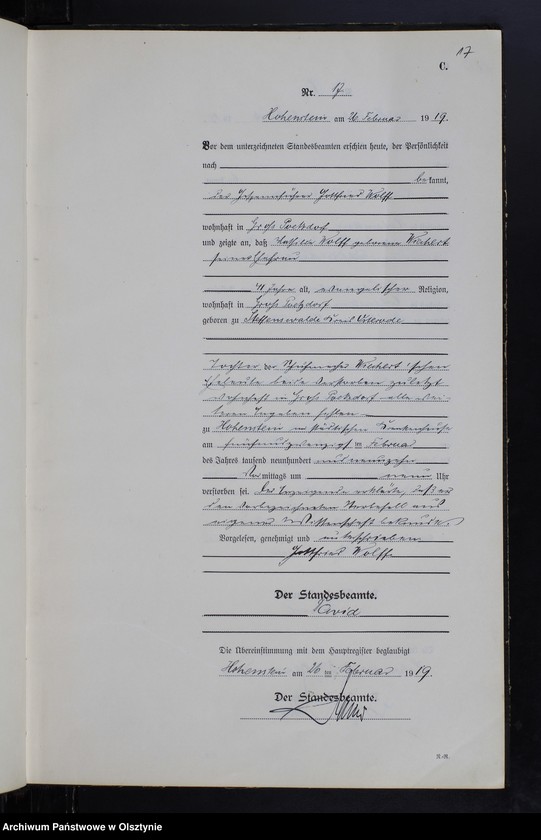 17
C.
Nr. 17
Hohenstein am 26 Februar 1919.
Vor dem unterzeichneten Standesbeamten erschien heute, der Persönlichkeit
nach
bekannt,
der Gottfried Wolff
wohnhaft in Groß
und zeigte an, daß Wolff geborene
seine Ehefrau
41 Jahre alt, evangelischer Religion,
wohnhaft in Groß
geboren zu Kreis Osterode
Tochter der
Eheleute beide verstorben zuletzt
wohnhaft in Groß alle wei-
teren Angaben fehlen
zu Hohenstein im städtischen Krankenhause
am fünfundzwanzigsten Februar
des Jahres tausend neunhundert und neunzehn
Vormittags um neun Uhr
verstorben sei. Der Anzeigende erklärte, daß er
den vorbezeichneten Sterbefall aus
eigener Wissenschaft bekunde.
Vorgelesen, genehmigt und unterschrieben
Gottfried Wolff
Der Standesbeamte.
Die Übereinstimmung mit dem Hauptregister beglaubigt
Hohenstein am 26 ten Februar 1919.
Der Standesbeamte.
Archiwum Państwowe w Olsztynie